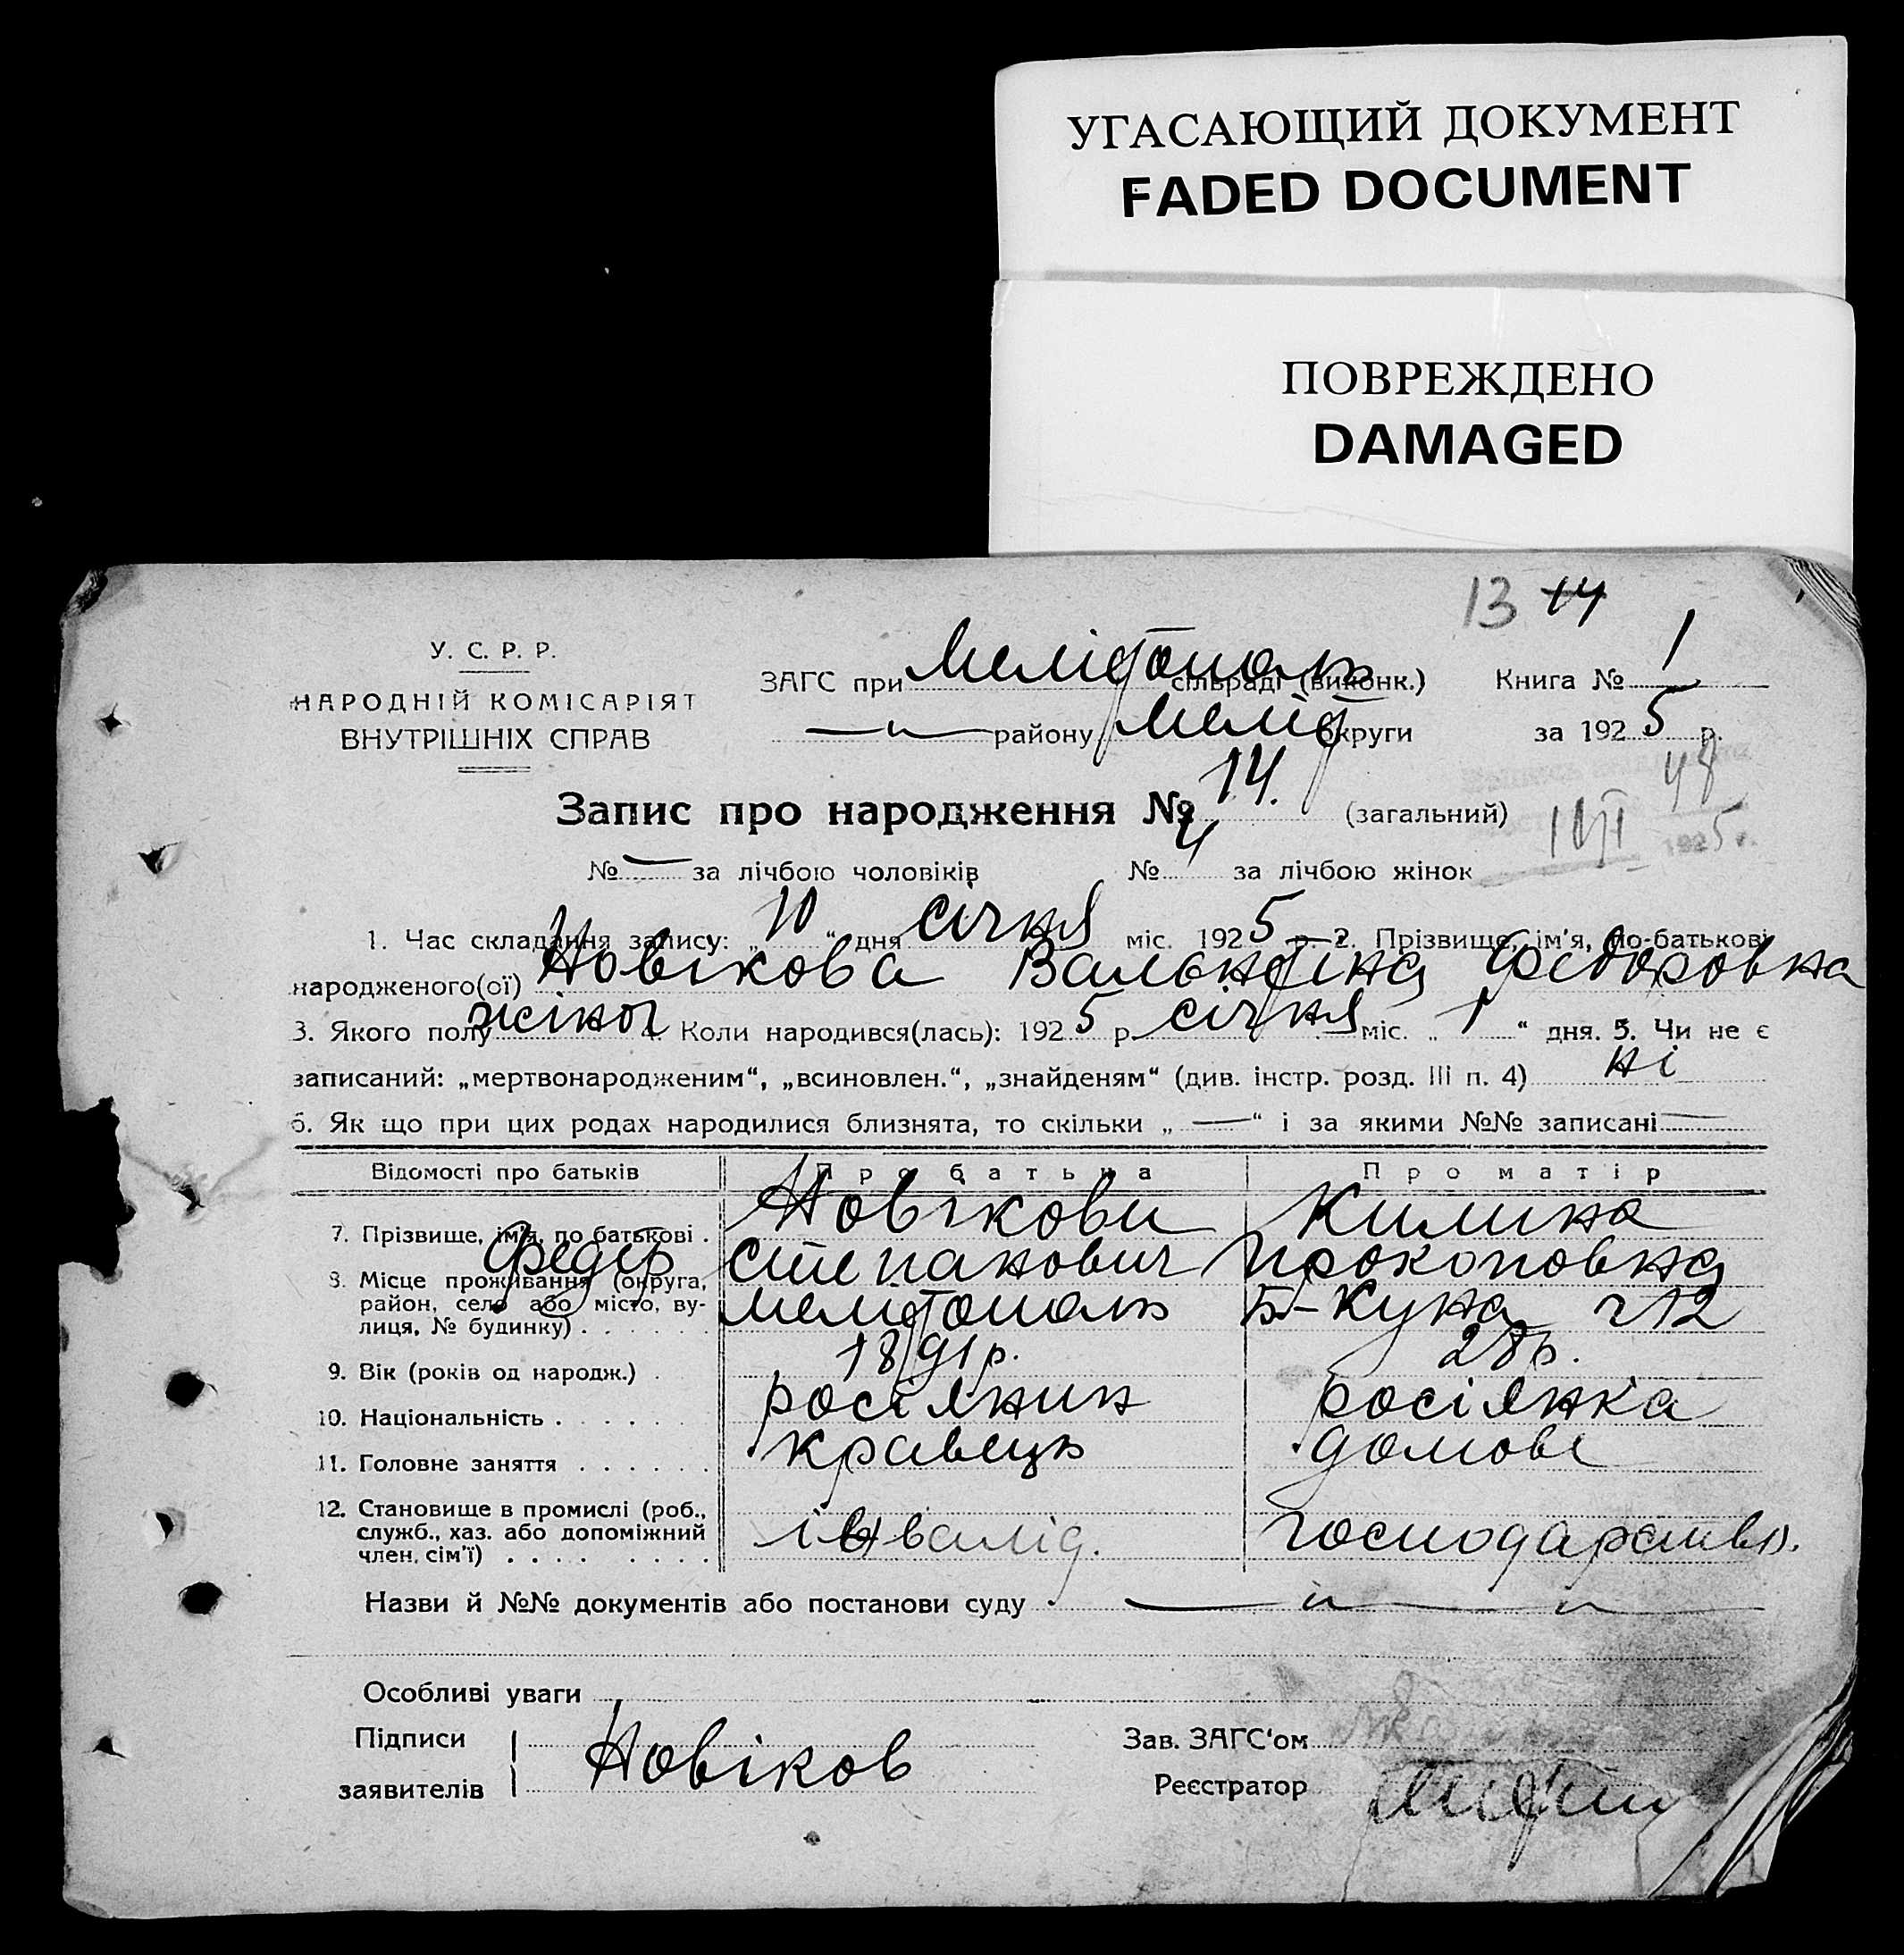 УГАСАЮЩИЙ ДОКУМЕНТ
FADED DOCUMENT
ПОВРЕЖДЕНО
DAMAGED
13 14
У. С. Р. Р.
НАРОДНІЙ КОМІСАРІЯТ
ВНУТРІШНІХ СПРАВ
ЗАГС при Мелітополь сільраді (виконк.) Книга № 1
— „ — району Меліт округи за 1925 р.
48
Запис про народження № 14. (загальний)
1925 г.
№ — за лічбою чоловіків № 4 за лічбою жінок
1. Час складання запису: „10“ дня січня міс. 1925 р. 2. Прізвище, ім'я, по-батькові
народженого(ої) Новікова Валентіна Федоровна
3. Якого полу жіноч 4. Коли народився(лась): 1925 р. січня міс. „1“ дня. 5. Чи не є
записаний: „мертвонародженим“, „всиновлен.“, „знайденям“ (див. інстр. розд. III п. 4) ні
6. Як що при цих родах народилися близнята, то скільки „—“ і за якими №№ записані —
Відомості про батьків Про батька Про матір
7. Прізвище, ім'я, по батькові . Новікови Килина
Федір Степанович Прокоповна
8. Місце проживання (округа, район, село або місто, вулиця, № будинку) . . . . . . Мелітополь Б-Куна ч 12
9. Вік (років од народж.) . 1891 р. 28 р.
10. Національність . . . . . . росіянин росіянка
11. Головне заняття . . . . . . кравець домове
12. Становище в промислі (роб., служб., хаз. або допоміжний член, сім'ї) . . . . . . . . інвалід. господарство.
Назви й №№ документів або постанови суду — „ — „ —
Особливі уваги
Підписи
заявителів Новіков
Зав. ЗАГС'ом
Реєстратор